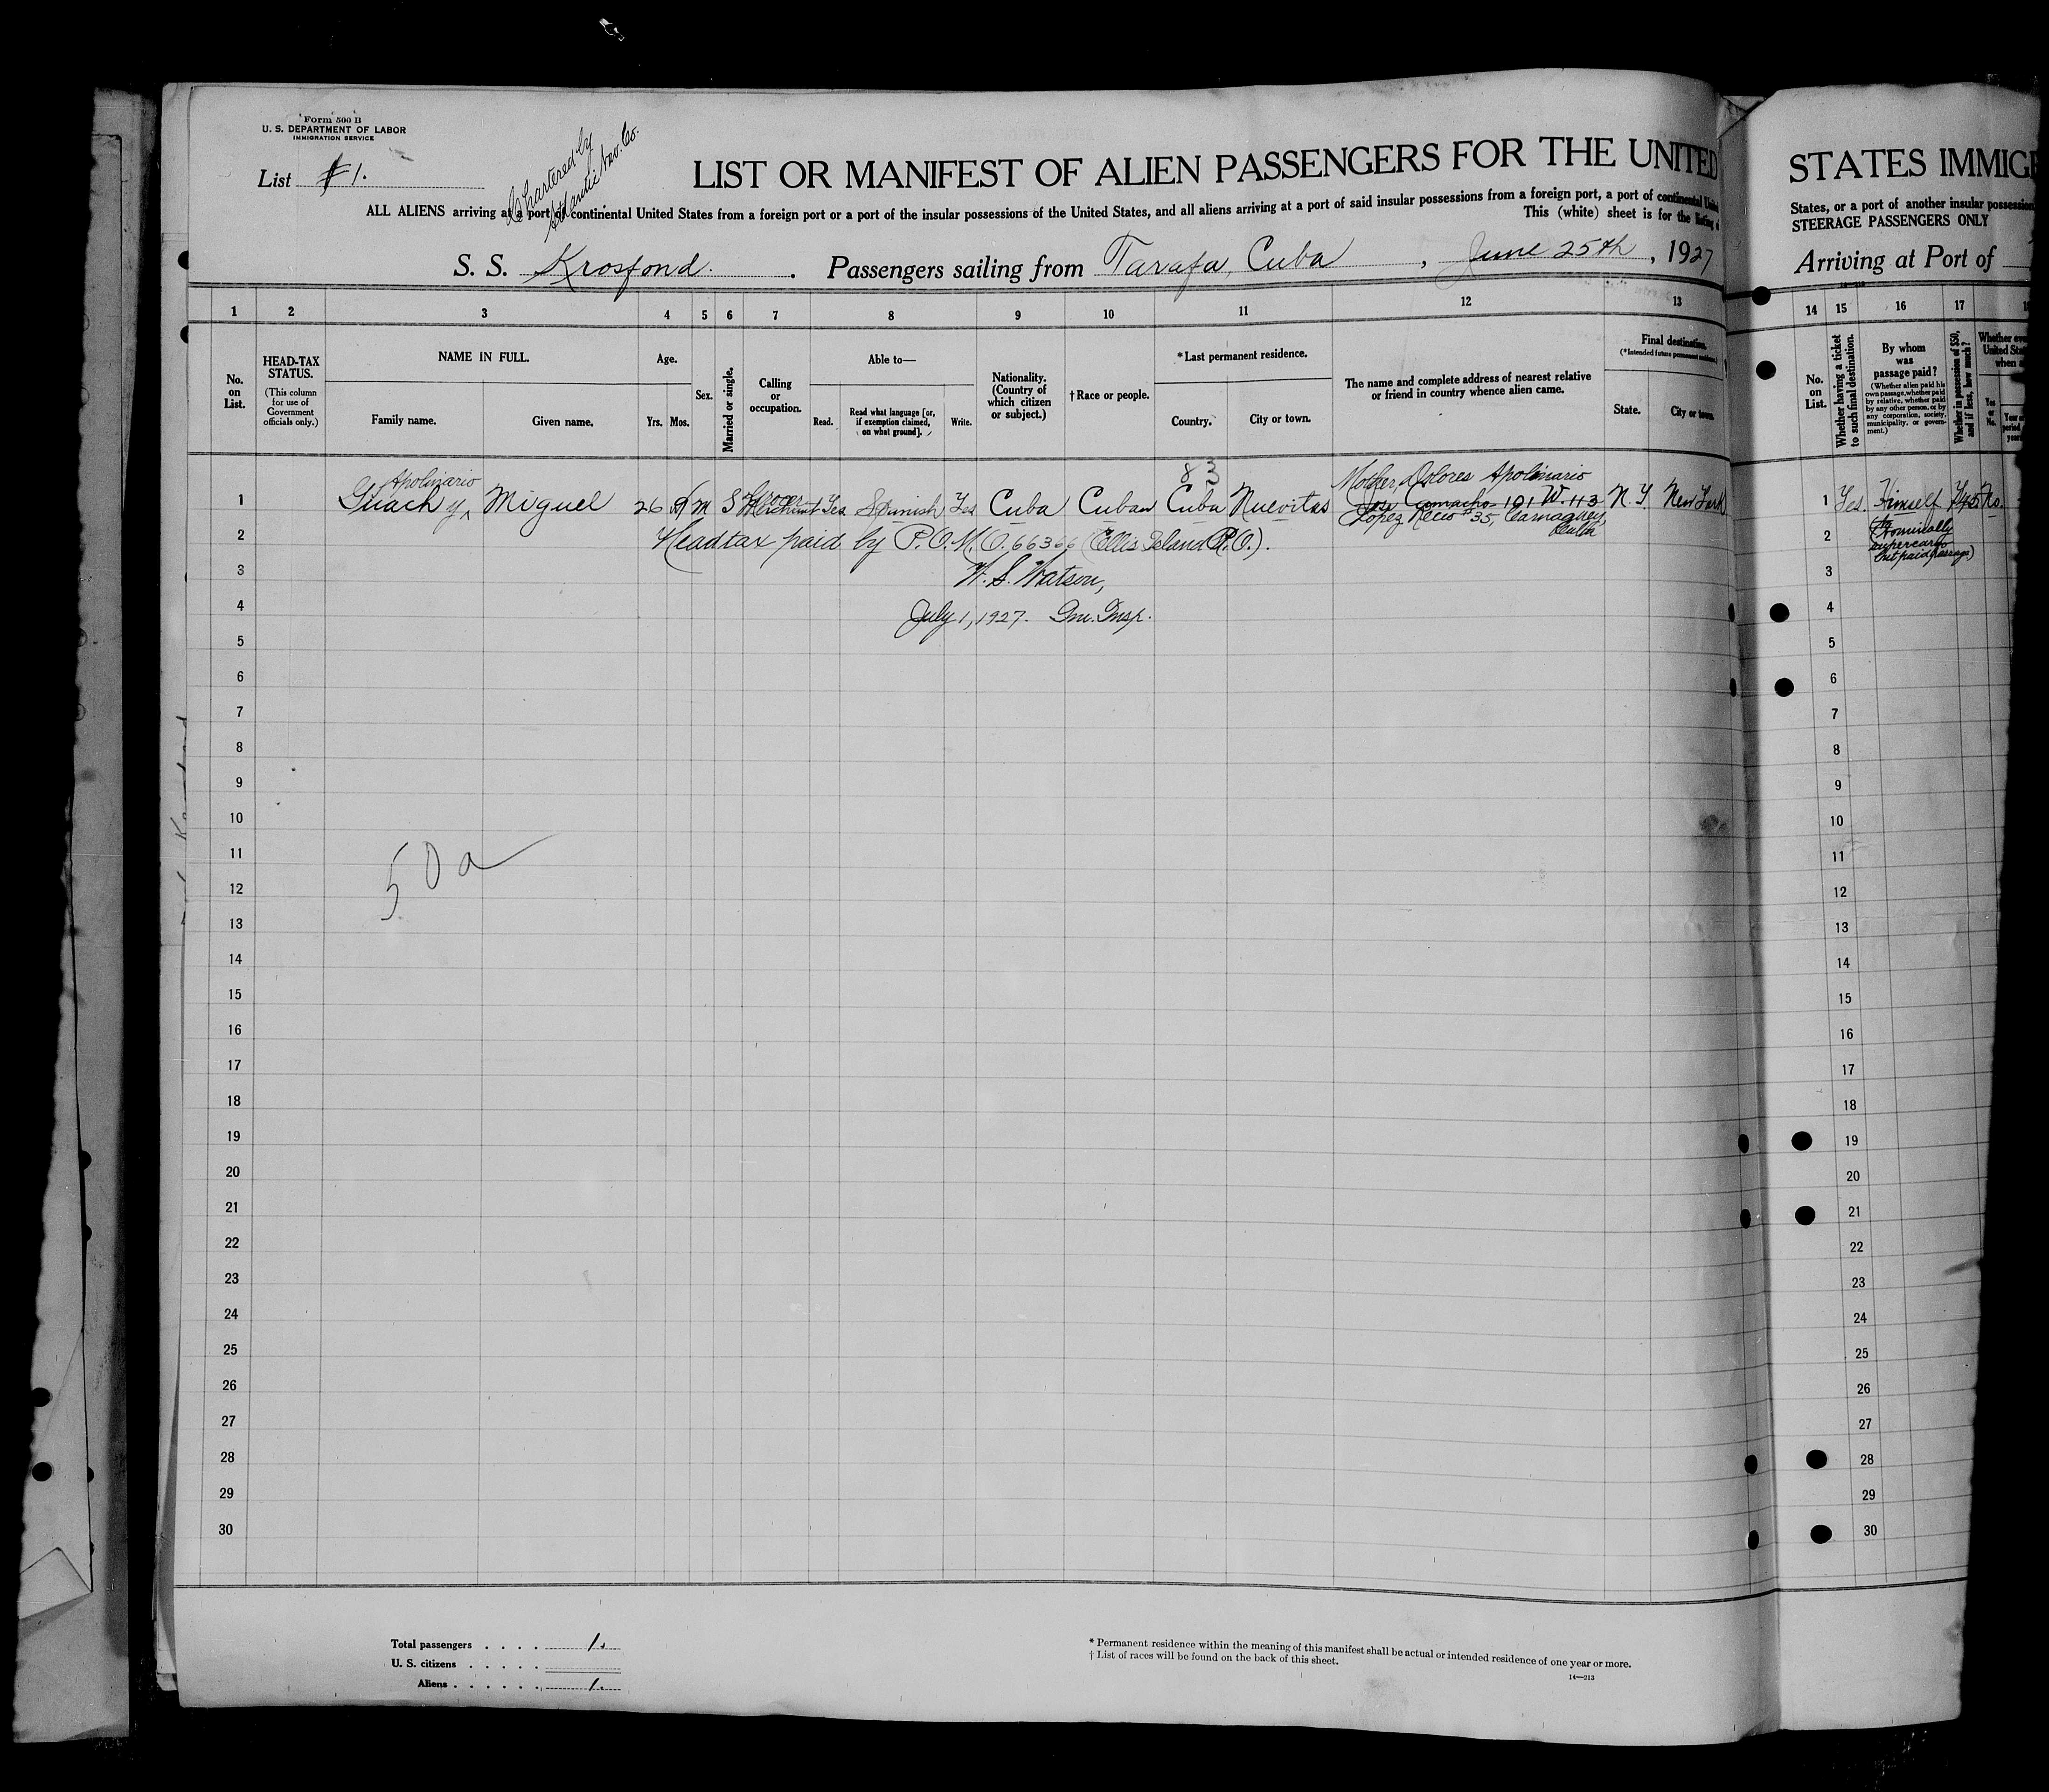 Form 500 B
U. S. DEPARTMENT OF LABOR
IMMIGRATION SERVICE
List #1.
Chartered by
Atlantic Nav. Co.
LIST OR MANIFEST OF ALIEN PASSENGERS FOR THE UNITED
ALL ALIENS arriving at a port of continental United States from a foreign port or a port of the insular possessions of the United States, and all aliens arriving at a port of said insular possessions from a foreign port, a port of continental United
This (white) sheet is for the listing
S. S. Krosfond. Passengers sailing from Tarafa, Cuba, June 25th, 1927
1 2 3 4 5 6 7 8 9 10 11 12 13
No. on List.
HEAD-TAX STATUS.
(This column for use of Government officials only.)
NAME IN FULL.
Family name. Given name.
Age.
Yrs. Mos.
Sex.
Married or single.
Calling or occupation.
Able to—
Read. Read what language [or, if exemption claimed, on what ground]. Write.
Nationality. (Country of which citizen or subject.)
†Race or people.
*Last permanent residence.
Country. City or town.
The name and complete address of nearest relative or friend in country whence alien came.
Final destination.
(*Intended future permanent residence.)
State. City or town.
83
Apolinario Mother, Dolores Apolinario
1 Guach y Miguel 26 m S Grocer Merchant Yes Spanish Yes Cuba Cuban Cuba Nuevitas Jose Camacho 101 W. 113 N.Y. New York
Lopez Recio #35, Camaguey, Cuba
2 Headtax paid by P.O.M.O. 66366 (Ellis Island P.O.).
3 W. S. Watson,
4 July 1, 1927. Im. Insp.
5
6
7
8
9
10
11
50a
12
13
14
15
16
17
18
19
20
21
22
23
24
25
26
27
28
29
30
Total passengers . . . . 1.
U. S. citizens . . . . .
Aliens . . . . . . 1.
* Permanent residence within the meaning of this manifest shall be actual or intended residence of one year or more.
† List of races will be found on the back of this sheet.
14—213
STATES IMMIG
States, or a port of another insular possession
STEERAGE PASSENGERS ONLY
Arriving at Port of
14—213
14 15 16 17 18
No. on List.
Whether having a ticket to such final destination.
By whom was passage paid?
(Whether alien paid his own passage, whether paid by relative, whether paid by any other person, or by any corporation, society, municipality, or government.)
Whether in possession of $50, and if less, how much?
Whether ever
United Sta
when a
Yes or No.
1 Yes. Himself No.
2 (Nominally
supercargo
but paid passage)
3
4
5
6
7
8
9
10
11
12
13
14
15
16
17
18
19
20
21
22
23
24
25
26
27
28
29
30